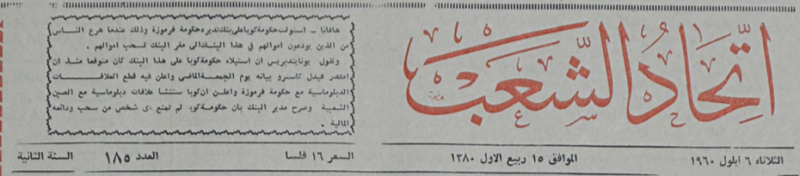 اتحاد الشعب
هافانا – استولت حكومة كوبا على بنك تديره حكومة فرموزة وذلك عندما هرع الناس
من الذين يودعون اموالهم في هذا البنك الى مقر البنك لسحب اموالهم .
وتقول يونايتدبريس ان استيلاء حكومة كوبا على هذا البنك كان متوقعا منذ ان
اصدر فيدل كاسترو بيانه يوم الجمعة الماضي واعلن فيه قطع العلاقات
الدبلوماسية مع حكومة فرموزة واعلن ان كوبا ستنشأ علاقات دبلوماسية مع الصين
الشعبية وصرح مدير البنك بان حكومة كوبا لم تمنع اي شخص من سحب ودائعه
المالية .
الثلاثاء ٦ ايلول ١٩٦٠ الموافق ١٥ ربيع الاول ١٣٨٠ السعر ١٦ فلسا العدد ١٨٥ السنة الثانية